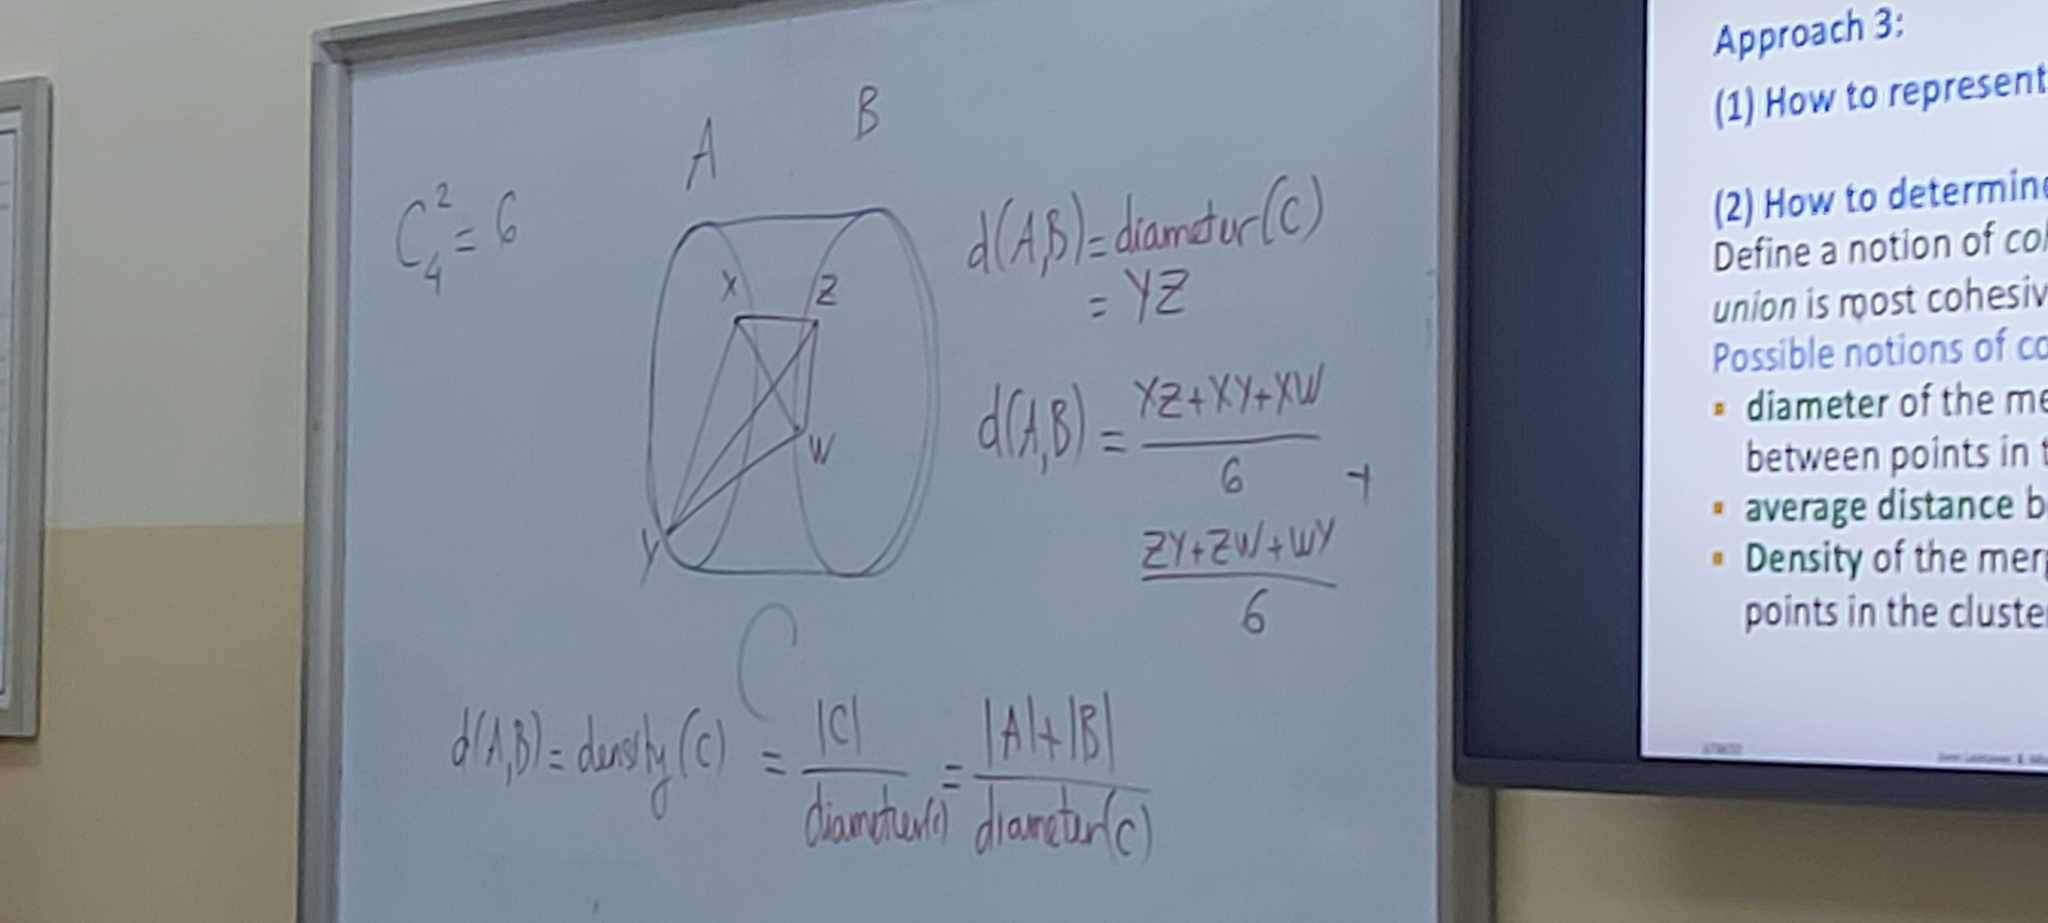 A B
C₄² = 6
X Z
W
Y
C
d(A,B) = diameter(C)
= YZ
d(A,B) = XZ+XY+XW
6 +
ZY+ZW+WY
6
d(A,B) = density(C) = |C| = |A|+|B|
diameter(C) diameter(C)
Approach 3:
(1) How to represent
(2) How to determin
Define a notion of
union is most cohesiv
Possible notions of
▪ diameter of the
between points in
▪ average distance
▪ Density of the
points in the